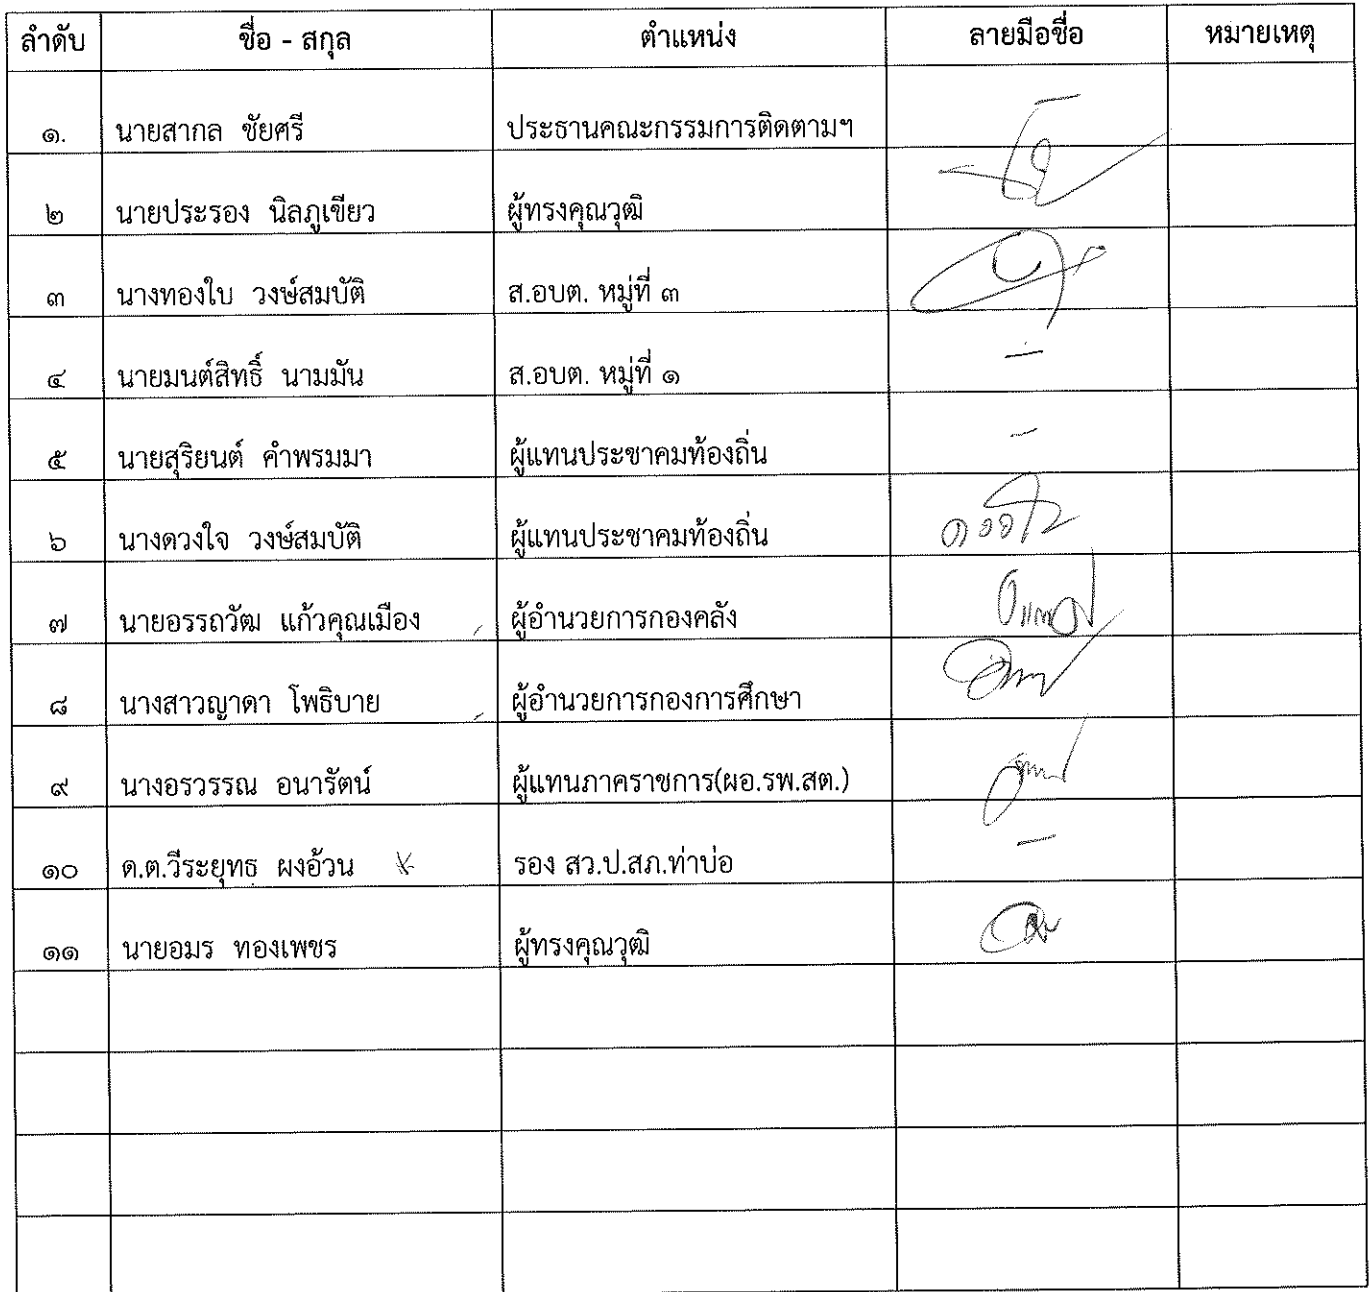 ลำดับ ชื่อ - สกุล ตำแหน่ง ลายมือชื่อ หมายเหตุ
๑. นายสากล ชัยศรี ประธานคณะกรรมการติดตามฯ –
๒ นายประรอง นิลภูเขียว ผู้ทรงคุณวุฒิ
๓ นางทองใบ วงษ์สมบัติ ส.อบต. หมู่ที่ ๓
๔ นายมนต์สิทธิ์ นามมัน ส.อบต. หมู่ที่ ๑ –
๕ นายสุริยนต์ คำพรมมา ผู้แทนประชาคมท้องถิ่น –
๖ นางดวงใจ วงษ์สมบัติ ผู้แทนประชาคมท้องถิ่น ดวงใจ
๗ นายอรรถวัฒ แก้วคุณเมือง ผู้อำนวยการกองคลัง
๘ นางสาวญาดา โพธิบาย ผู้อำนวยการกองการศึกษา
๙ นางอรวรรณ อนารัตน์ ผู้แทนภาคราชการ(ผอ.รพ.สต.)
๑๐ ด.ต.วีระยุทธ ผงอ้วน รอง สว.ป.สภ.ท่าบ่อ –
๑๑ นายอมร ทองเพชร ผู้ทรงคุณวุฒิ